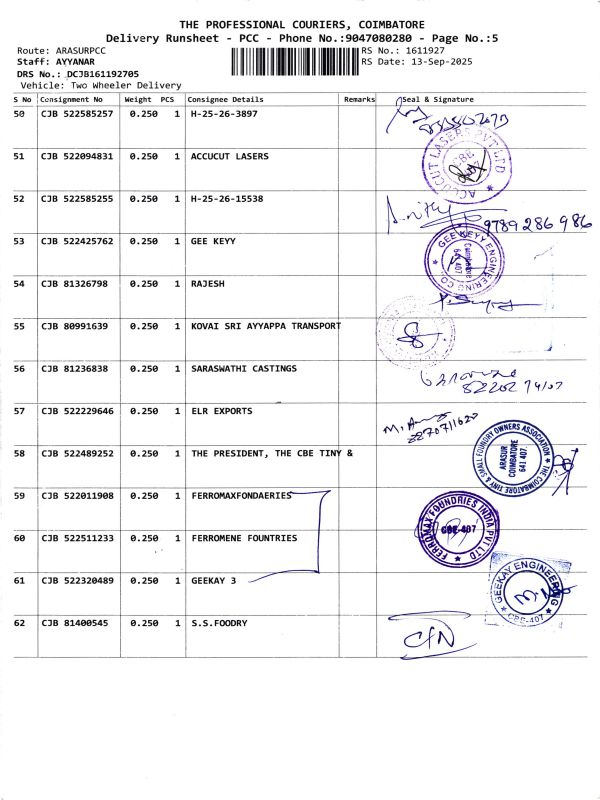 THE PROFESSIONAL COURIERS, COIMBATORE
Delivery Runsheet - PCC - Phone No.:9047080280 - Page No.:5
Route: ARASURPCC
RS No.: 1611927
Staff: AYYANAR
RS Date: 13-Sep-2025
DRS No.: DCJB161192705
Vehicle: Two Wheeler Delivery
S No Consignment No Weight PCS Consignee Details Remarks Seal & Signature
50 CJB 522585257 0.250 1 H-25-26-3897
51 CJB 522094831 0.250 1 ACCUCUT LASERS
ACCUCUT LASERS PVT LTD
CBE
407
52 CJB 522585255 0.250 1 H-25-26-15538
9789286986
53 CJB 522425762 0.250 1 GEE KEYY
GEE KEYY ENGINEERING CO.
Coimbatore
641 407
54 CJB 81326798 0.250 1 RAJESH
55 CJB 80991639 0.250 1 KOVAI SRI AYYAPPA TRANSPORT
56 CJB 81236838 0.250 1 SARASWATHI CASTINGS
57 CJB 522229646 0.250 1 ELR EXPORTS
58 CJB 522489252 0.250 1 THE PRESIDENT, THE CBE TINY &
THE COIMBATORE TINY & SMALL FOUNDRY OWNERS ASSOCIATION
ARASUR
COIMBATORE
641 407.
59 CJB 522011908 0.250 1 FERROMAXFONDAERIES
FERROMAX FOUNDRIES INDIA PVT LTD
CBE-407
60 CJB 522511233 0.250 1 FERROMENE FOUNTRIES
61 CJB 522320489 0.250 1 GEEKAY 3
GEEKAY ENGINEERING
CBE-407
62 CJB 81400545 0.250 1 S.S.FOODRY